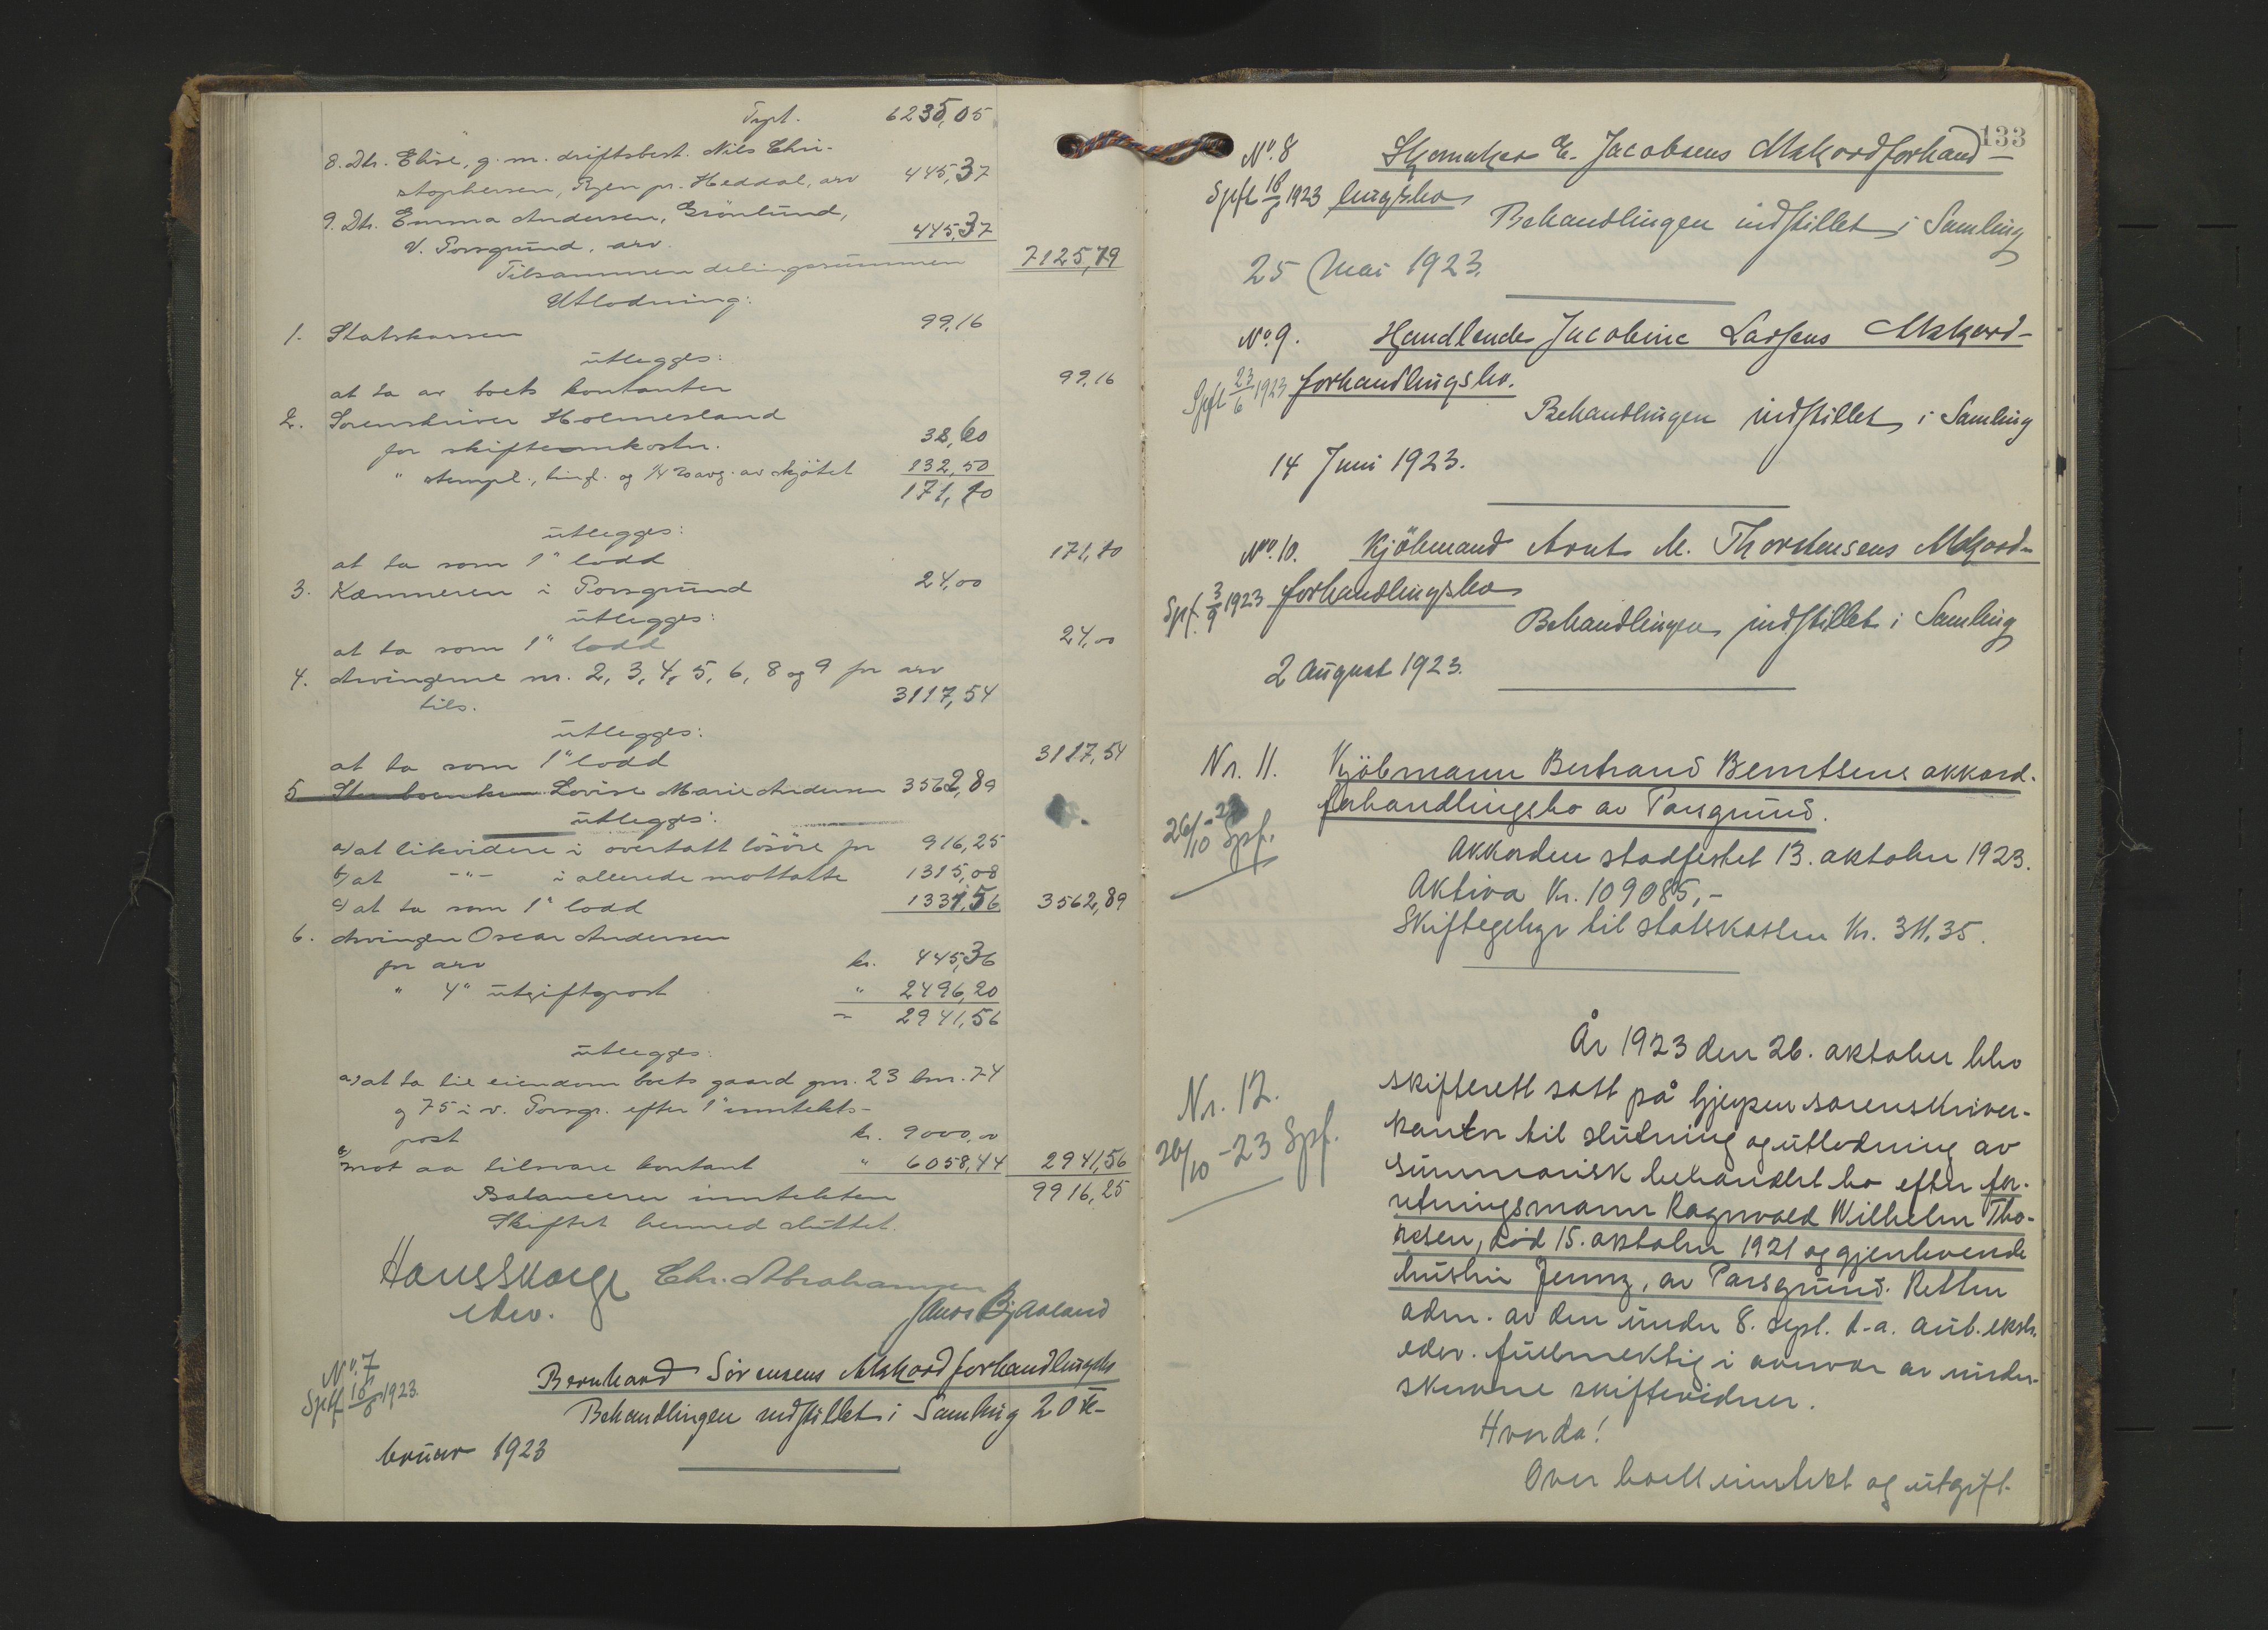 Trpt. 6235,05
8. Dtr. Elise, g. m. driftsbest. Nils Chri-
stophersen, Ryen pr. Heddal, arv 445,37
9. Dtr. Emma Andersen, Grönlund,
V. Porsgrund, arv. 445,37
Tilsammen delingssummen 7125,79
Utlodning:
1. Statskassen 99,16
utlegges:
at ta av boets kontanter 99,16
2. Sorenskriver Holmesland
for skifteomkostn. 38,60
" stempl., tingl. og 1/4 % avg. av skjötet 132,50
171,10
utlegges:
at ta som 1" lodd 171,10
3. Kæmneren i Porsgrund 24,00
utlegges:
at ta som 1" lodd 24,00
4. Arvingene nr. 2, 3, 4, 5, 6, 8 og 9 for arv
tils. 3117,54
utlegges:
at ta som 1" lodd 3117,54
5 Lovise Marie Andersen 3562,89
utlegges:
a) at likvidere i overtatt lösöre for 916,25
b) at -"- i allerede mottatte 1315,08
c) at ta som 1" lodd 1331,56 3562,89
6. Arvingen Oscar Andersen
for arv kr. 445,36
" 4" utgiftspost " 2496,20
2941,56
utlegges:
a) at ta til eiendom boets gaard gnr. 23 bnr. 74
og 75 i v. Porsgr. efter 1" inntekts-
post kr. 9000,00
mot aa tilsvare kontant " 6058,44 2941,56
Balancerer inntekten 9916,25
Skiftet hermed sluttet.
Hans Skarge Chr. Abrahamsen
edsv. Jans Bjaaland
No. 7 Bernhard Sörensens Akkordforhandlingsbo
Spfl 18/6 1923. Behandlingen indstillet i Samling 20 Fe-
bruar 1923
133
No. 8 Skomaker E. Jacobsens Akkordforhand-
Spfl 18/6 1923 lingsbo
Behandlingen indstillet i Samling
25 Mai 1923.
No. 9. Handlende Jacobine Larsens Akkord-
Spfl 23/6 1923 forhandlingsbo.
Behandlingen indstillet i Samling
14 Juni 1923.
No. 10. Kjöbmand Arnt M. Thorstensens Akkord-
Spf. 3/9 1923 forhandlingsbo
Behandlingen indstillet i Samling
2 August 1923.
Nr. 11. Kjöbmann Bertrand Berntsens akkord-
forhandlingsbo av Porsgrund.
26/10-23 Spf.
Akkorden stadfestet 13. oktober 1923.
Aktiva Kr. 109085,-
Skiftegebyr til statskassen Kr. 311,35.
År 1923 den 26. oktober blev
Nr. 12. skifterett satt på Gjerpen sorenskriver-
kontor til slutning og utlodning av
26/10-23 Spf. summarisk behandlet bo efter for-
retningsmann Ragnvald Wilhelm Tho-
resen, död 15. oktober 1921 og gjenlevende
hustru Jenny, av Porsgrund. Retten
adm. av den under 8. sept. d.a. aut. ekstr.
edsv. fullmektig i overvær av under-
skrevne skiftevidner.
Hvorda!
Over boets inntekt og utgift